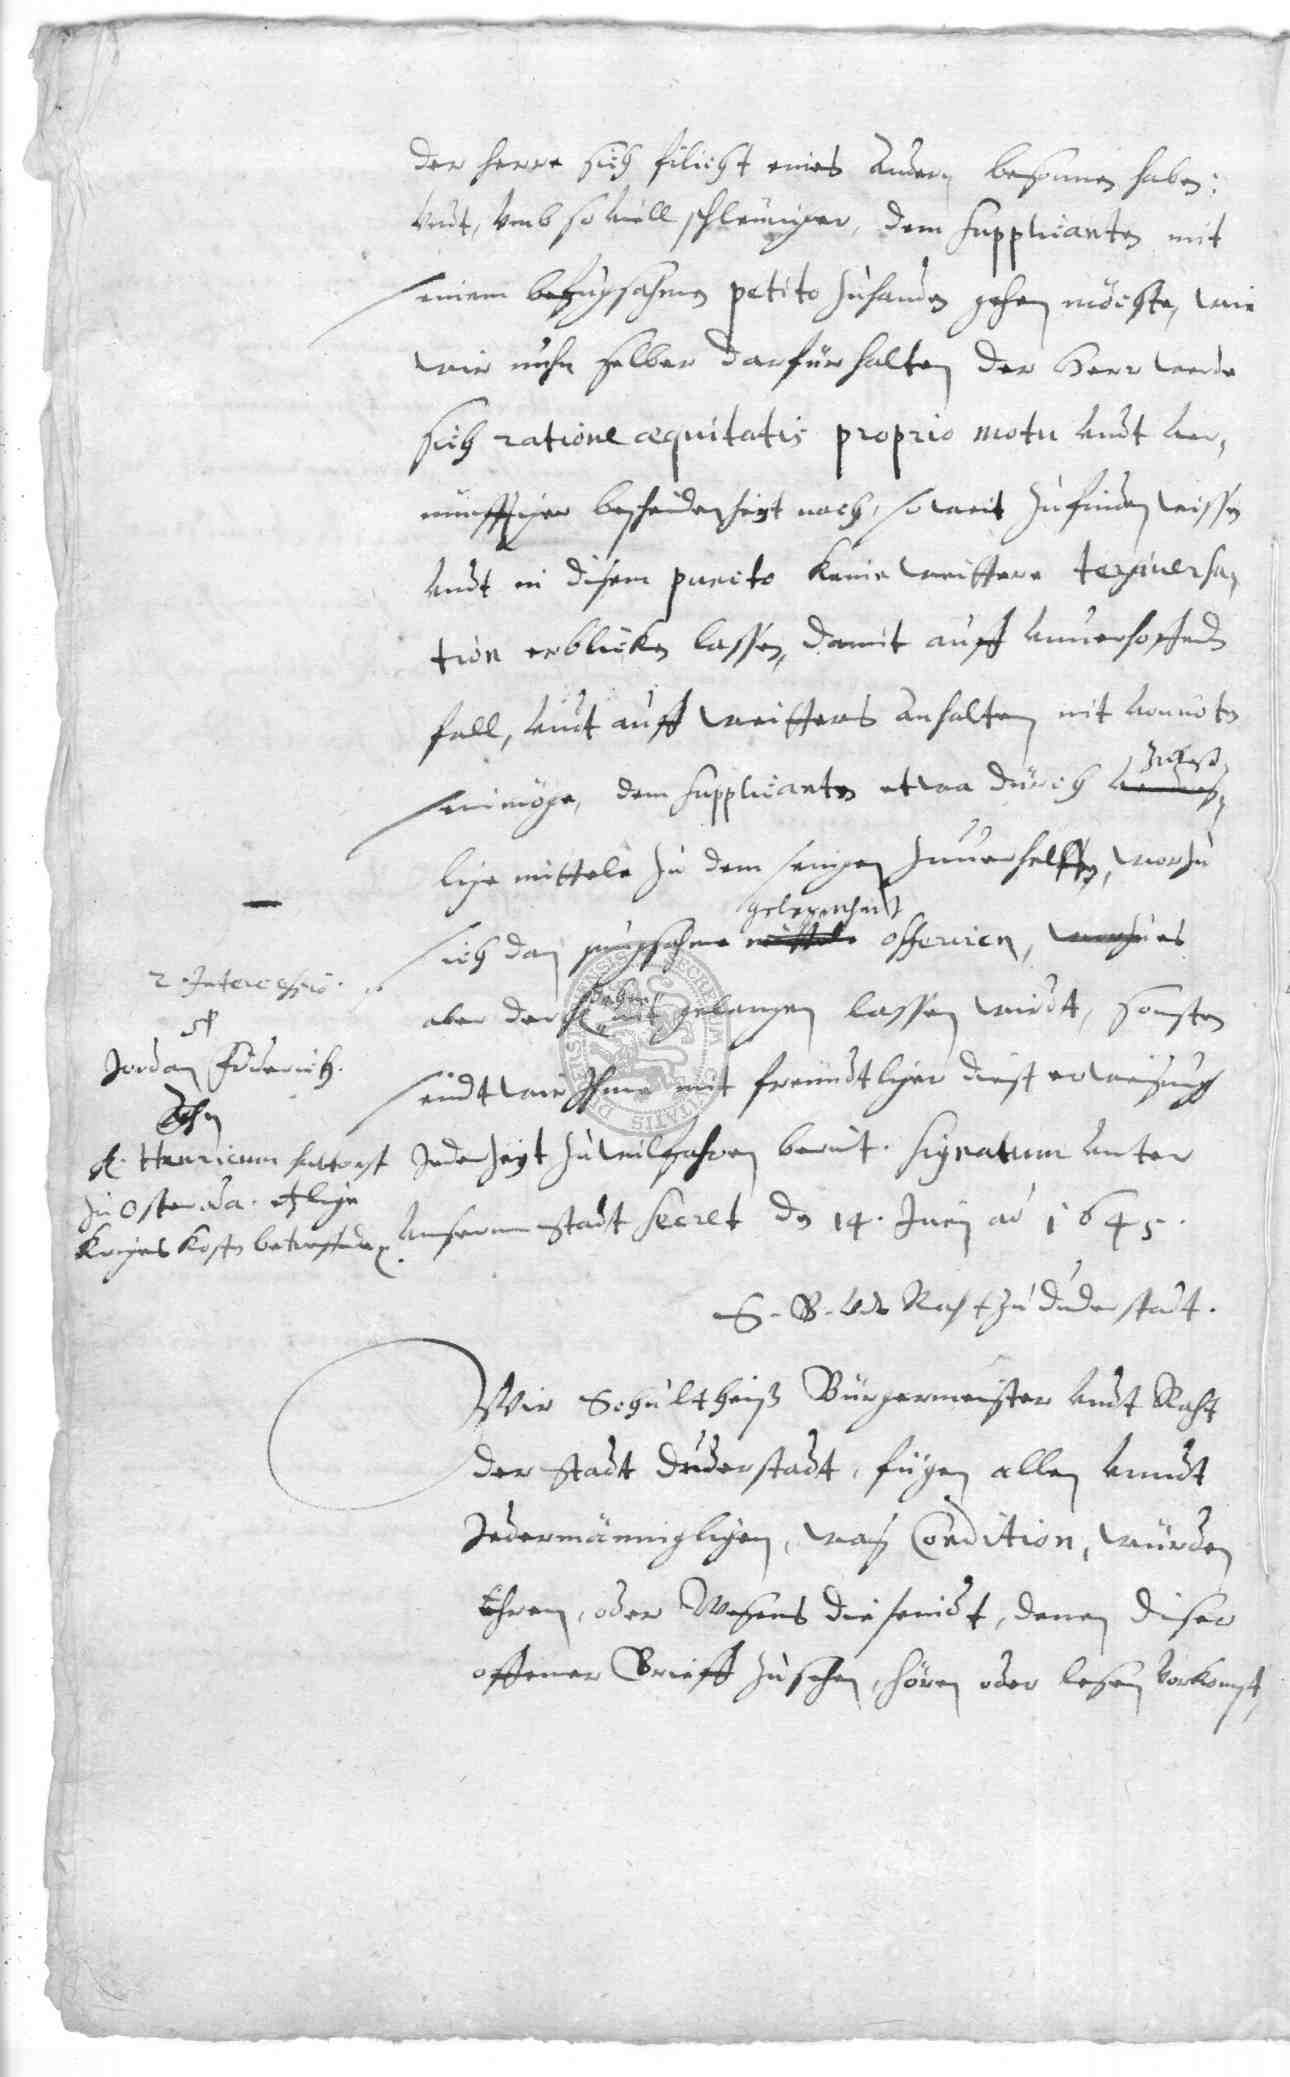 der herre sich filicht eines Andern besonnen haben:
Vndt, Vmb so viell schleuniger, dem supplicanten mit
seinem befugsahmen petito zuhanden gehen möchte, wie
wir nuhn selber darfür halten der Herr werde
sich ratione æquitatis proprio motu vndt ver,
nünfftiger bescheidenheyt nach, so weit zufinden wissen
vndt in disem puncto keine weittere tergiuersa,
tion erblicken lassen, damit auff vnuerhofftend
fall, vndt auff weitters anhalten nit vonnöten
sein möge, dem supplicanten etwa durch
lige mittele zu dem seinigen zuuerhelffen, worzu
gelegenheit
sich dan gnugsahme mittele offerirn,
aber der Herr nit gelangen lassen wirdt, sonsten
seindt wir Ihme mit freundtliger dinst erweisung
Jederzeyt zu wilfahren bereit. Signatum unter
vnserm Stadt Secret dn 14. Juny ao 1645.
S. B. vndt Raht zu Duderstadt.
2 Intercessio
Jordan Friderich.
H. Henricum
zu Osteroda. etlige
Kriges Kosten betreffende.
Wir Schultheiß Bürgermeister vndt Raht
der Stadt Duderstadt, fügen allen vnndt
Jedermännigligen, waß Condition, würden
Ehren, oder Wesens die seindt, denen diser
offener Brieff zu sehen, hören oder lesen vorkompt,